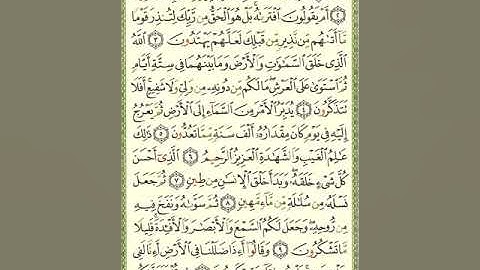 ٢ أَمْ يَقُولُونَ افْتَرَاهُ بَلْ هُوَ الْحَقُّ مِن رَّبِّكَ لِتُنذِرَ قَوْمًا
مَّا أَتَاهُم مِّن نَّذِيرٍ مِّن قَبْلِكَ لَعَلَّهُمْ يَهْتَدُونَ ٣ اللَّهُ
الَّذِي خَلَقَ السَّمَاوَاتِ وَالْأَرْضَ وَمَا بَيْنَهُمَا فِي سِتَّةِ أَيَّامٍ
ثُمَّ اسْتَوَىٰ عَلَى الْعَرْشِ مَا لَكُم مِّن دُونِهِ مِن وَلِيٍّ وَلَا شَفِيعٍ أَفَلَا
تَتَذَكَّرُونَ ٤ يُدَبِّرُ الْأَمْرَ مِنَ السَّمَاءِ إِلَى الْأَرْضِ ثُمَّ يَعْرُجُ
إِلَيْهِ فِي يَوْمٍ كَانَ مِقْدَارُهُ أَلْفَ سَنَةٍ مِّمَّا تَعُدُّونَ ٥ ذَٰلِكَ
عَالِمُ الْغَيْبِ وَالشَّهَادَةِ الْعَزِيزُ الرَّحِيمُ ٦ الَّذِي أَحْسَنَ
كُلَّ شَيْءٍ خَلَقَهُ وَبَدَأَ خَلْقَ الْإِنسَانِ مِن طِينٍ ٧ ثُمَّ جَعَلَ
نَسْلَهُ مِن سُلَالَةٍ مِّن مَّاءٍ مَّهِينٍ ٨ ثُمَّ سَوَّاهُ وَنَفَخَ فِيهِ
مِن رُّوحِهِ وَجَعَلَ لَكُمُ السَّمْعَ وَالْأَبْصَارَ وَالْأَفْئِدَةَ قَلِيلًا
مَّا تَشْكُرُونَ ٩ وَقَالُوا أَإِذَا ضَلَلْنَا فِي الْأَرْضِ أَإِنَّا لَفِي